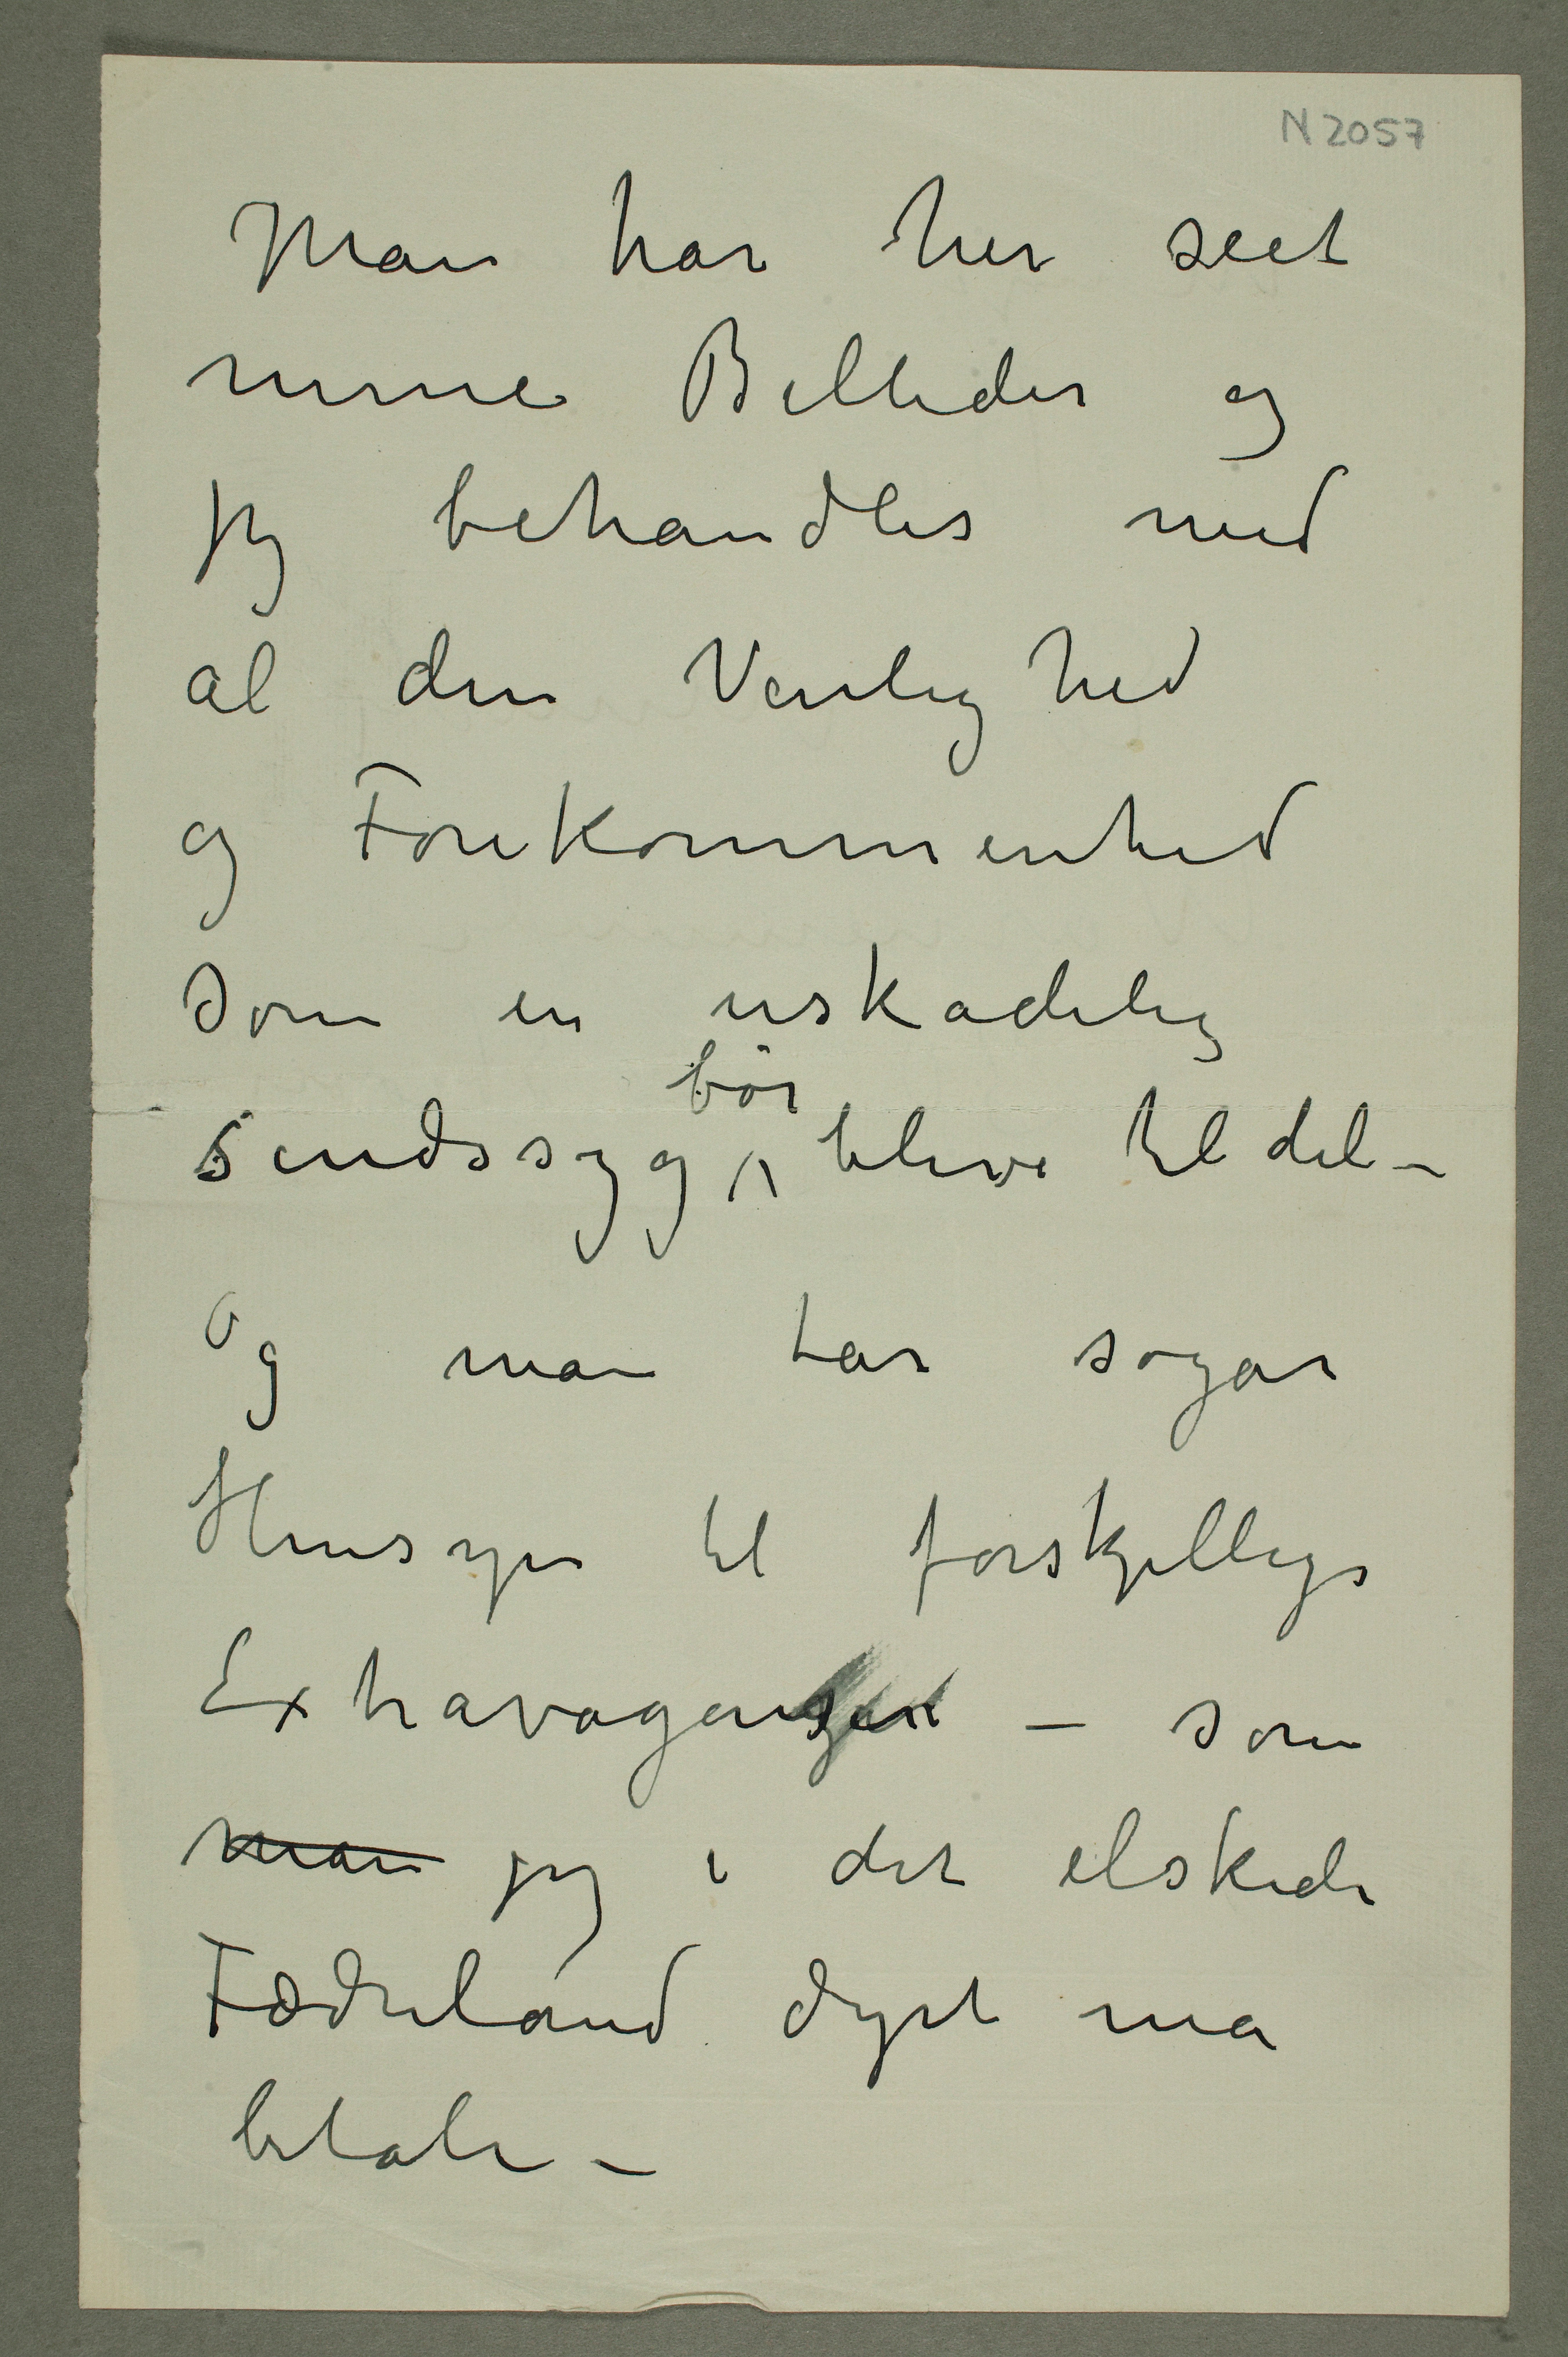 N 2057
Man har her seet
mine Billeder og
jeg behandles med
al den Venlighed
og Forekommenhed
som en uskadelig
sindssyg bör blive til del –
Og man tar sogar
Hensyn til forskjellige
Extravaganzen – som
man jeg i det elskede
Fædreland dyrt må
betale –